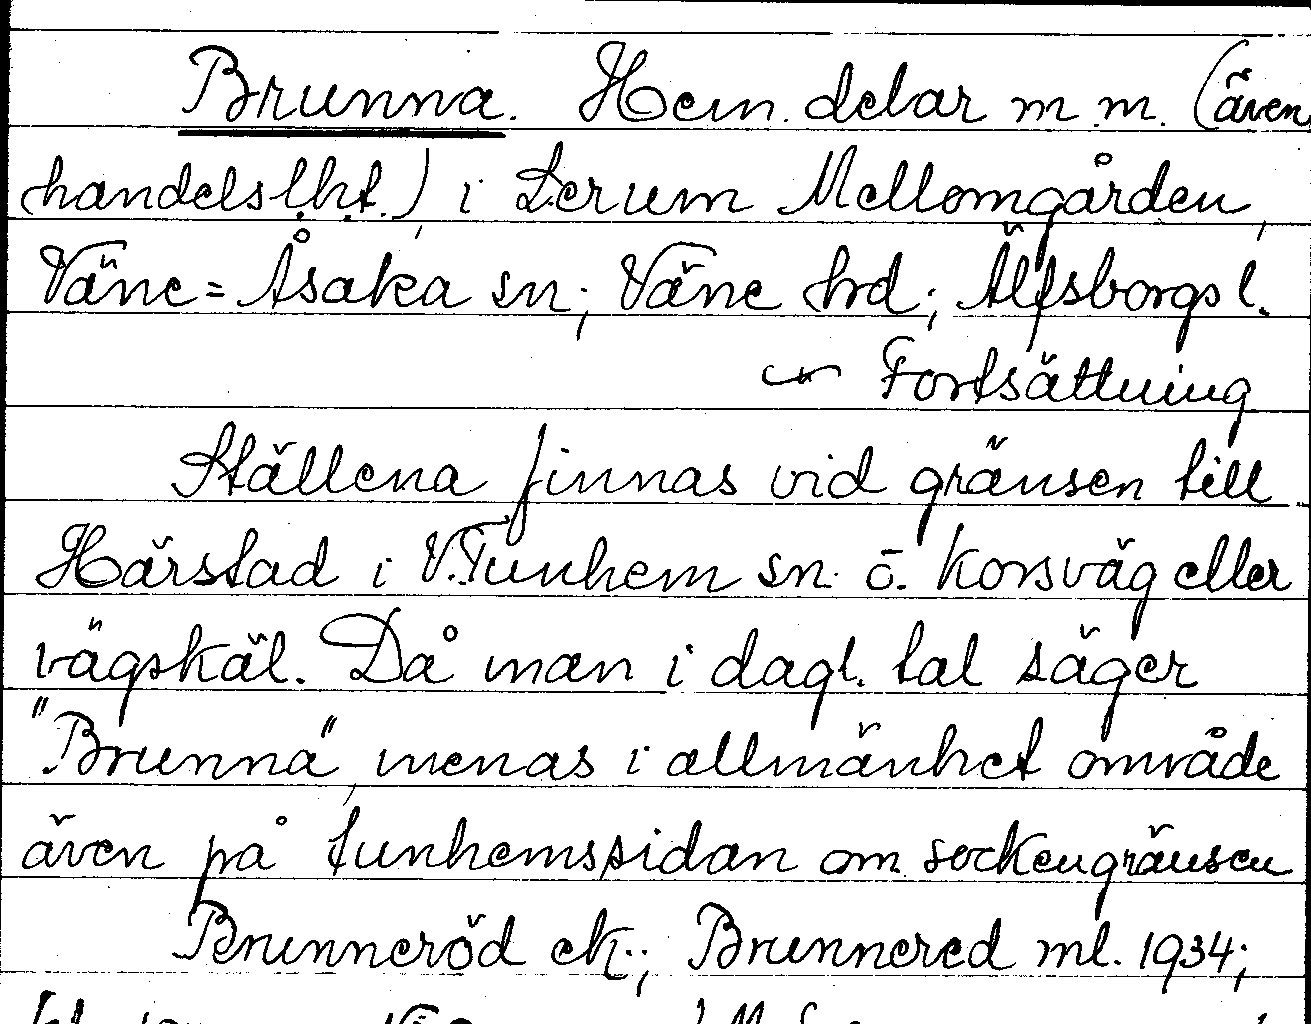 Brunna. Hem. delar m.m. (även
handelslht.) i Lerum Mellomgården,
Väne=Åsaka sn; Väne hrd; Älfsborgs l.
Fortsättning
Ställena finnas vid gränsen till
Härstad i V.Tunhem sn. ö. korsväg eller
vägskäl. Då man i dagl. tal säger
"Brunna", menas i allmänhet område
även på tunhemssidan om sockengränsen
Brunneröd ek.; Brunnered ml. 1934;